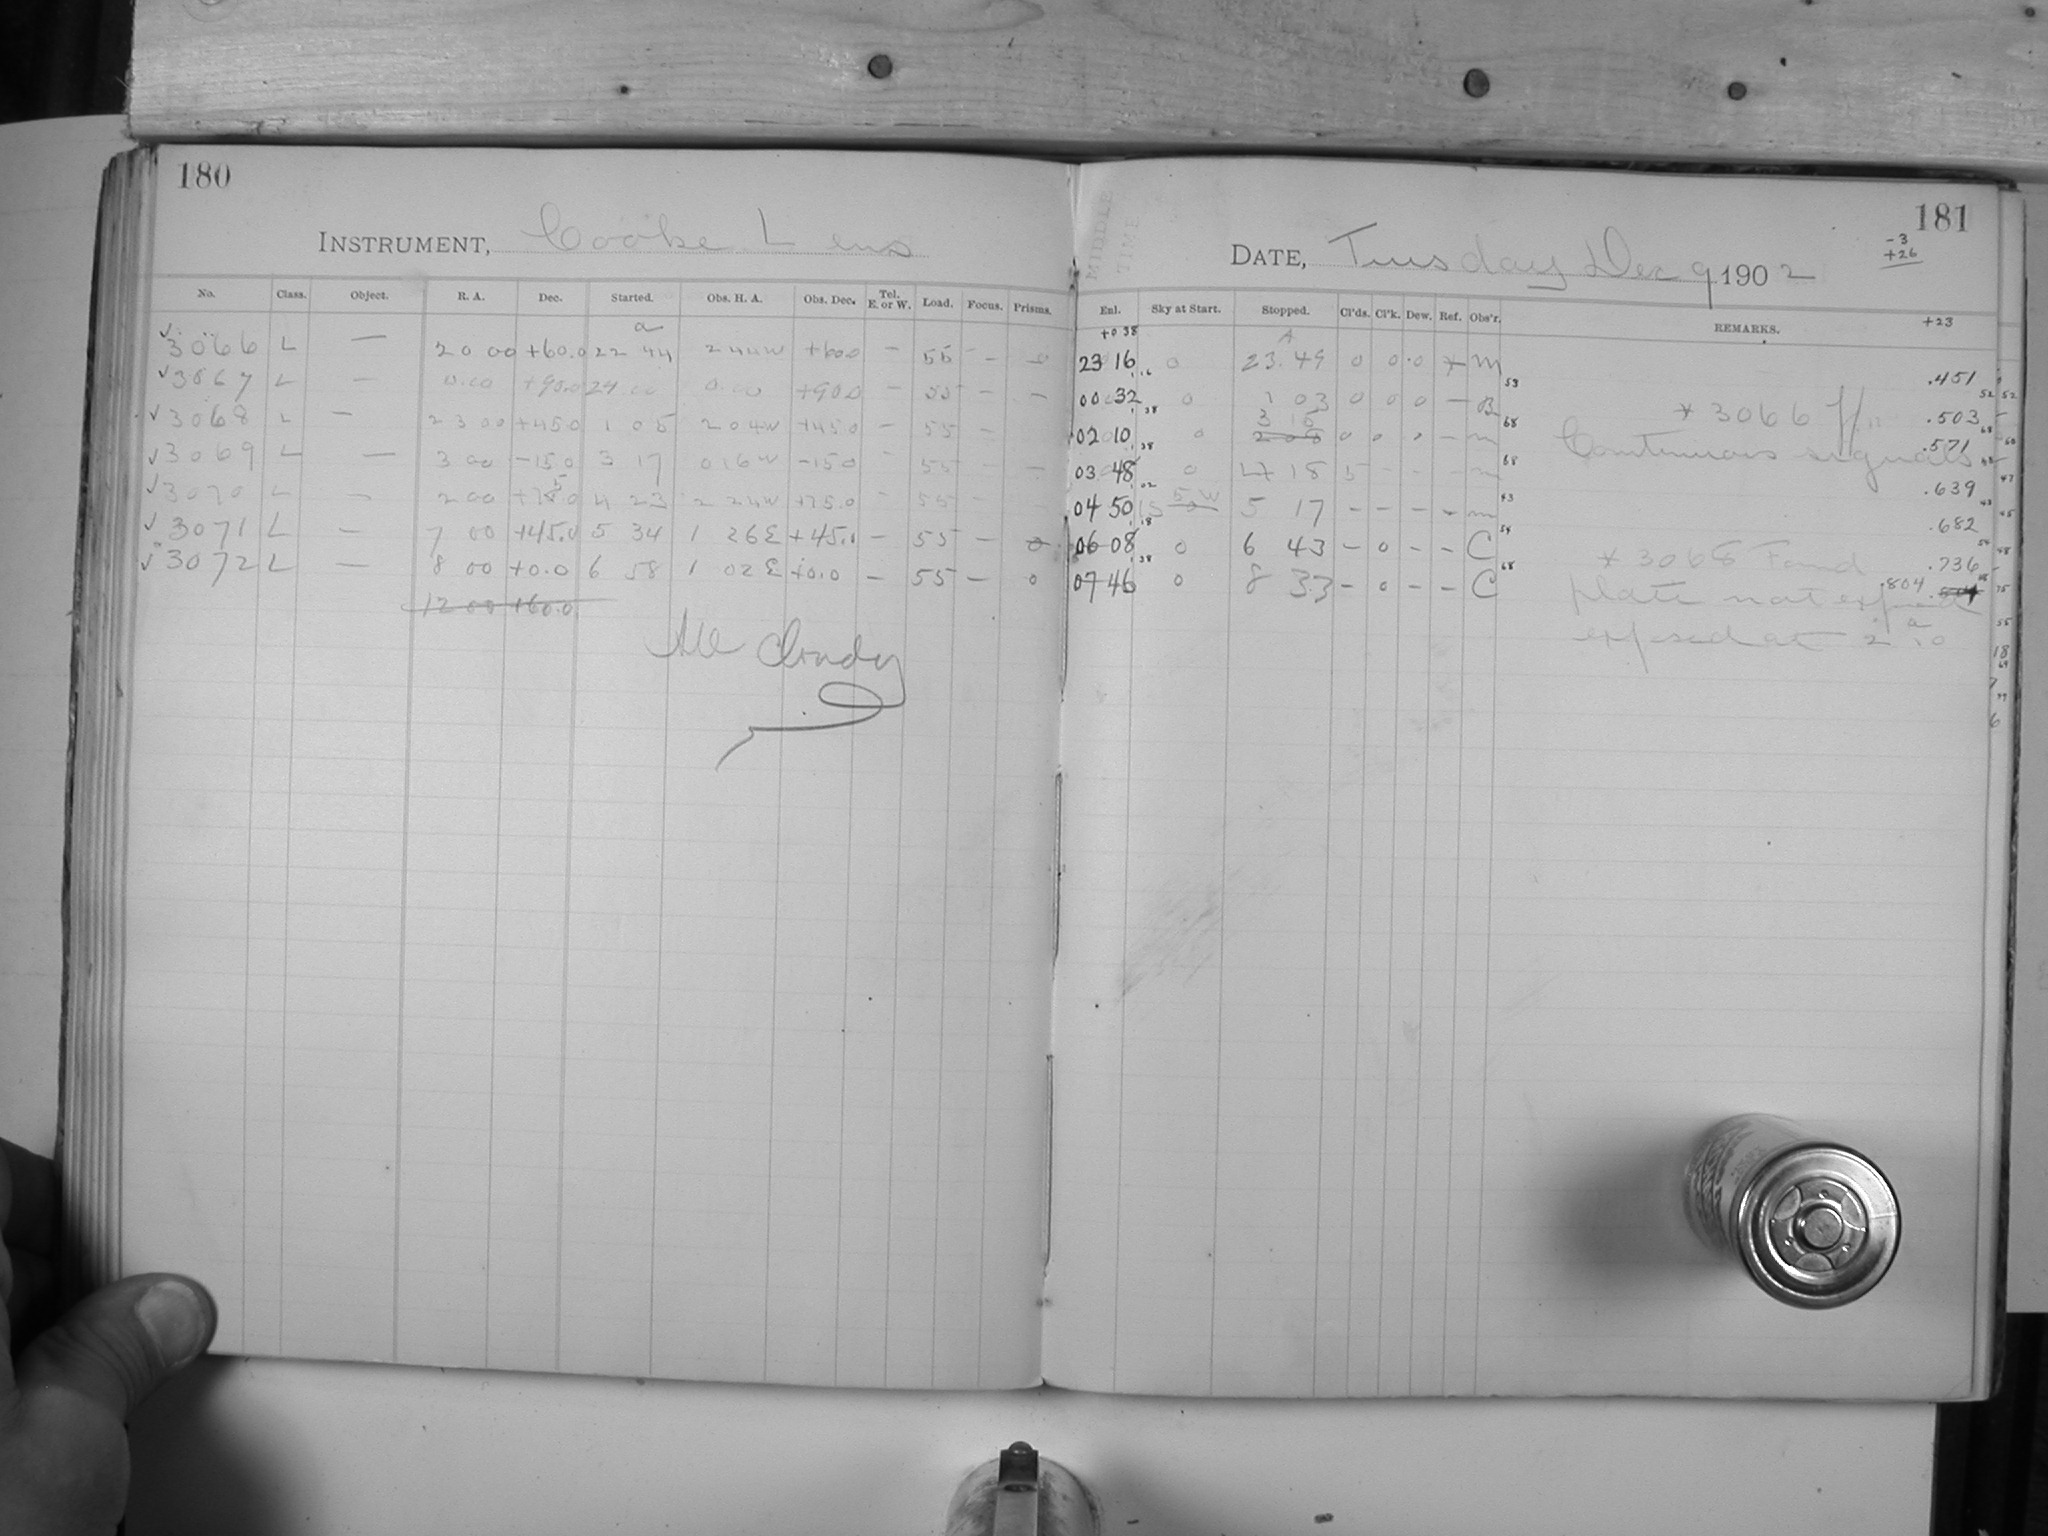 180
INSTRUMENT, Cooke Lens
No. Class. Object. R. A. Dec. Started. Obs. H. A. Obs. Dec. Tel. E. or W. Load. Focus. Prisms.
a
✓ 3066 L — 20 00 +60.0 22 44 2 44 W +60.0 — 55 — 0
✓ 3067 L — 0.00 +90.0 24 00 0.00 +90.0 — 55 — —
✓ 3068 L — 23 00 +45.0 1 05 2 04 W +45.0 — 55 —
✓ 3069 L — 3 00 -15.0 3 17 0 16 W -15.0 — 55 — —
✓ 3070 L — 2 00 +75.0 4 23 2 24 W +75.0 — 55 —
✓ 3071 L — 7 00 +45.0 5 34 1 26 E +45.0 — 55 — 0
✓ 3072 L — 8 00 +0.0 6 58 1 02 E +0.0 — 55 — 0
12 00 +60.0
All Cloudy
181
-3
+26
MIDDLE
TIME
DATE, Tuesday Dec 9 1902
Enl. Sky at Start. Stopped. Cl'ds. Cl'k. Dew. Ref. Obs'r. REMARKS. +23
+0 38
A
23 16 0 23.49 0 0 0 * M .451
00 32 0 1 03 0 0 0 — B * 3066 .503
3 15
02 10 0 2 08 0 0 0 — m Continuous signals .571
03 48 0 4 18 5 — — — m .639
04 50 5 17 — — — — m .682
06 08 0 6 43 — 0 — — C * 3068 Found .736
07 46 0 8 33 — 0 — — C plate not exposed .804
exposed at 2 10